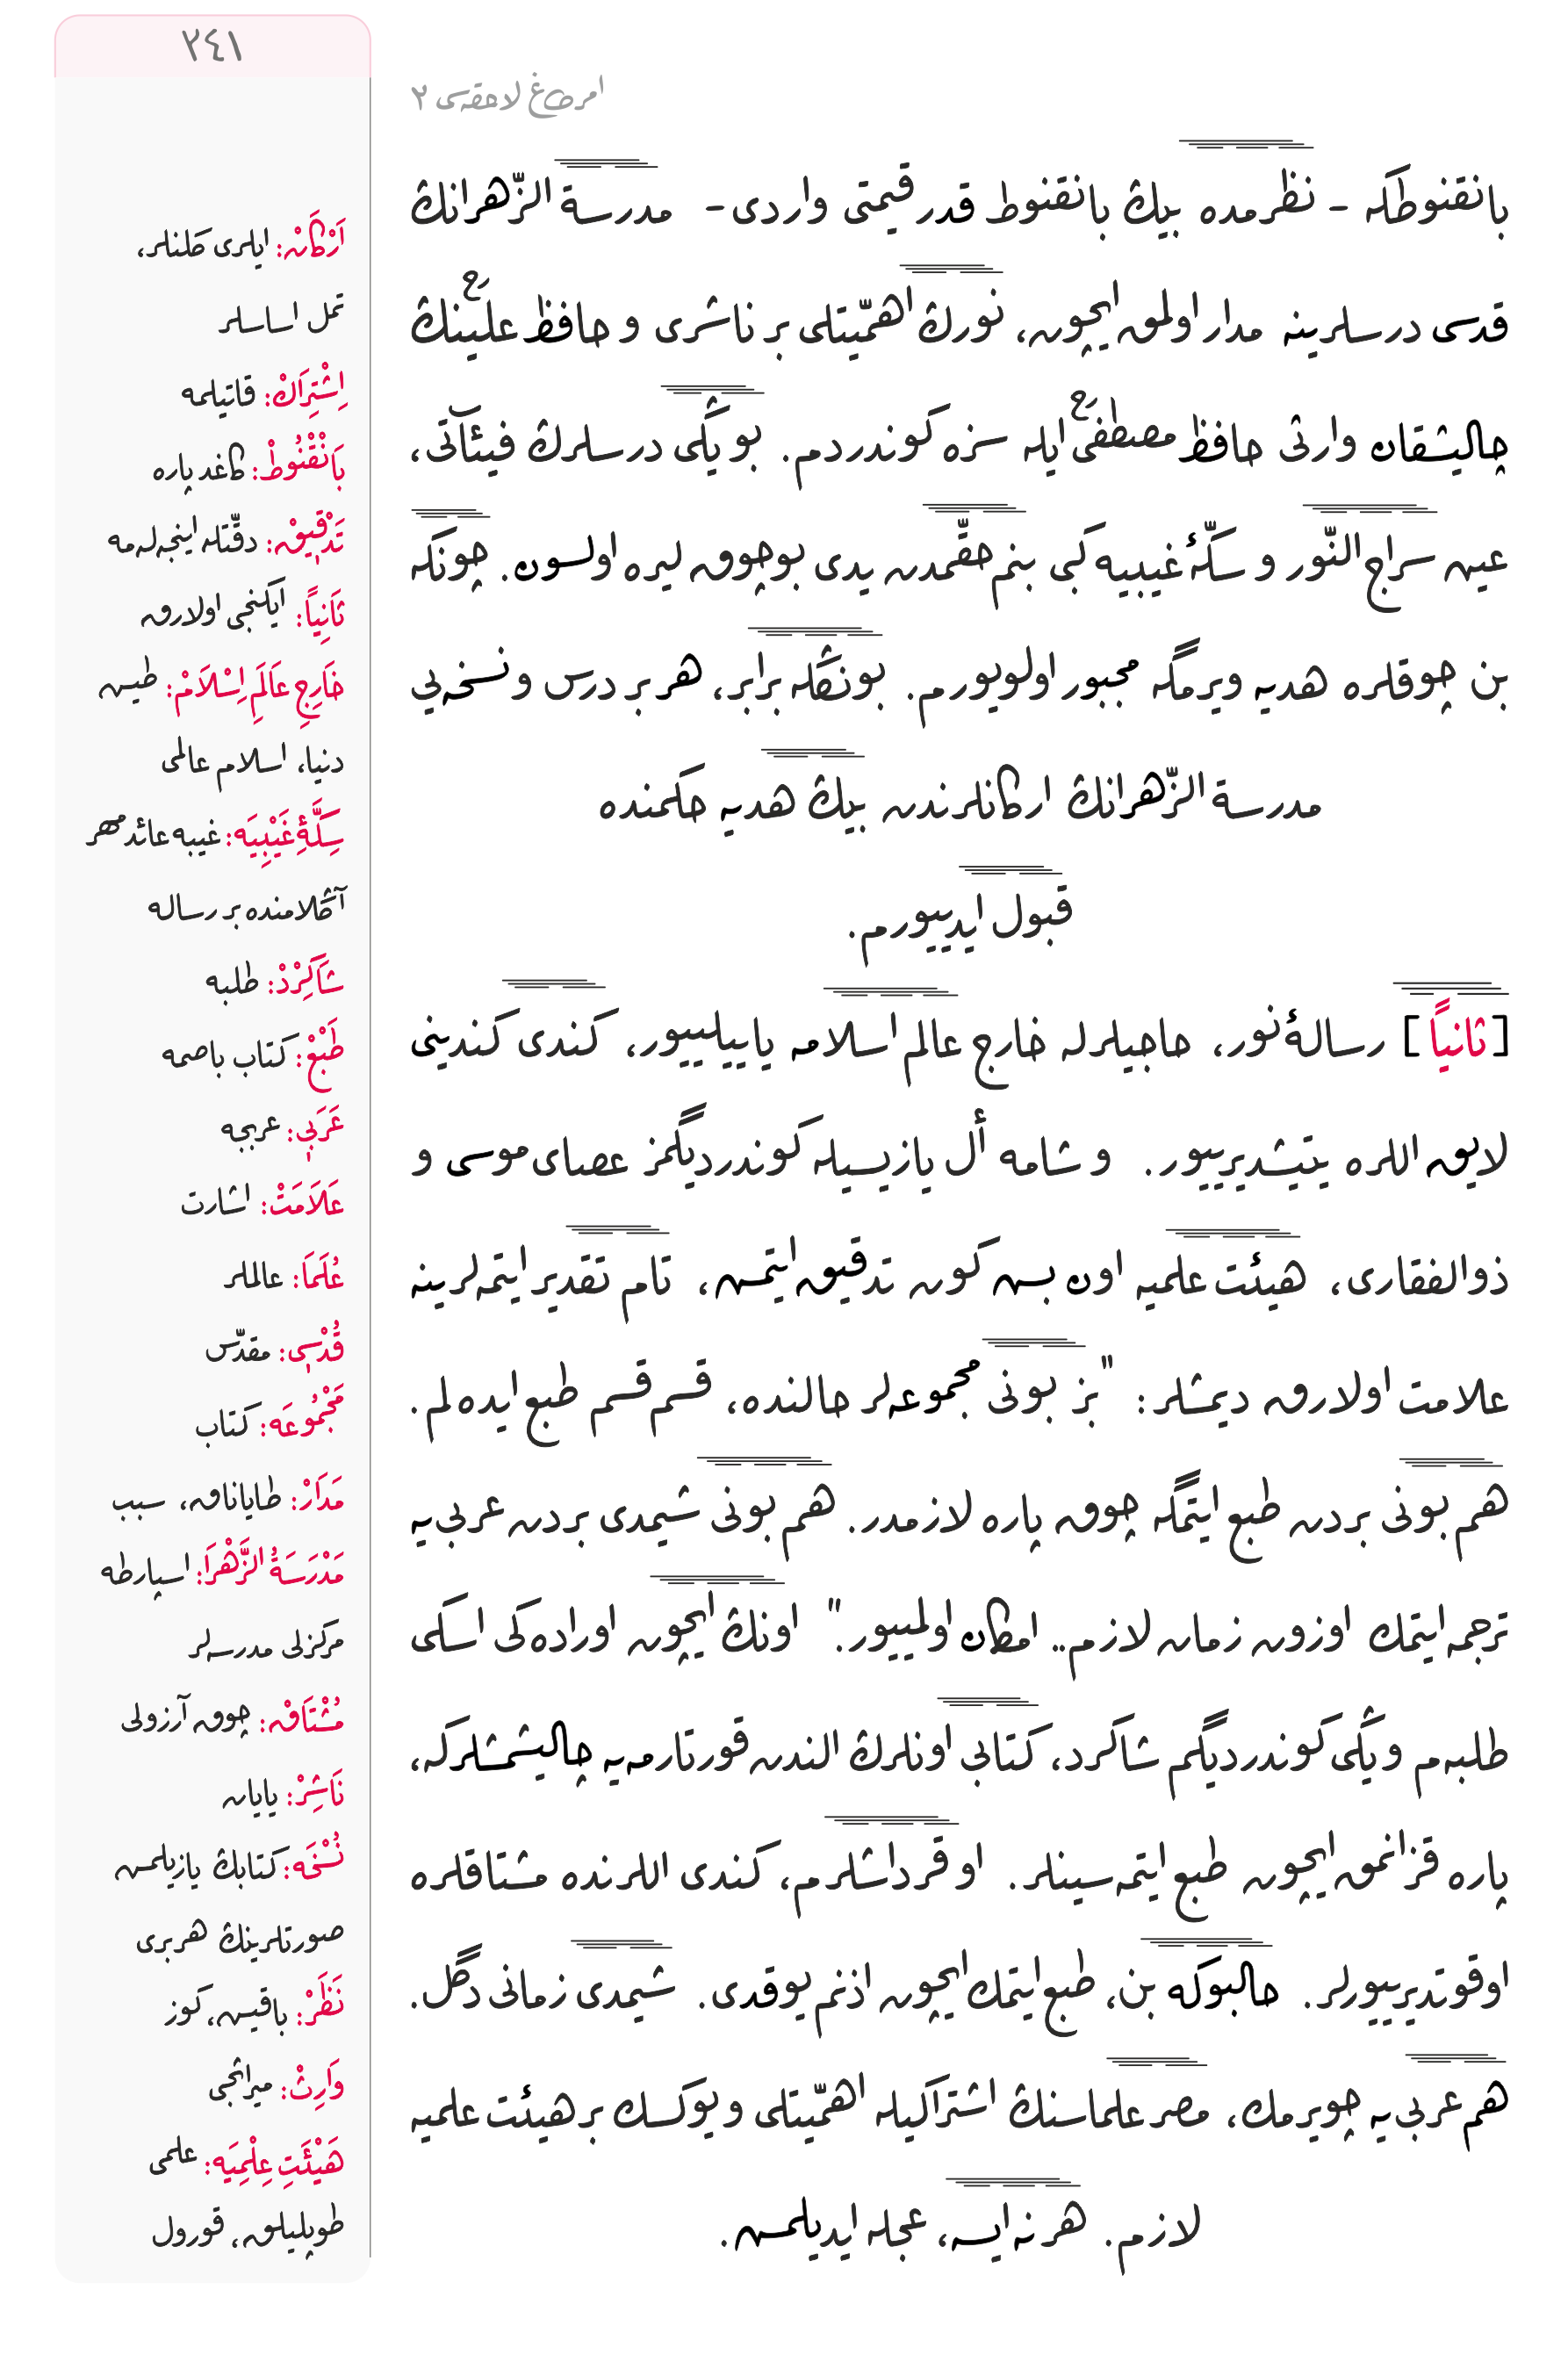 ٢٤١
امرطاغ لاحقه‌سی ٢
بانقنوطكه - نظرمده بيڭ بانقنوط قدر قيمتی واردی - مدرسة الزّهرانڭ
قدسی درسلرينه مدار اولمق ايچون، نورڭ اهمّيتلی بر ناشری و حافظ علی‌ينڭ
چاليشقان وارثی حافظ مصطفى ايله سزه كوندردم. بو يڭی درسلرڭ فيئاتی،
عين سراج النّور و سكّۀ غيبيه كبی بنم حقّمدن يدی بوچوق ليره اولسون. چونكه
بن چوقلره هديه ويرمگه مجبور اولويورم. بونڭله برابر، هر بر درس و نسخه‌يی
مدرسة الزّهرانڭ اركانلرندن بيڭ هديه حكمنده
قبول ايدييورم.
[ثانياً] رسالۀ نور، حاجيلرله خارج عالم اسلامه ياييلييور، كندی كندينی
لايق اللره يتيشديرييور. و شامه أل يازيسيله كوندرديگمز عصای موسی و
ذوالفقاری، هيئت علميه اون بش كون تدقيق ايتمش، تام تقدير ايتمه‌لرينه
علامت اولارق ديمشلر: "بز بونی مجموعه‌لر حالنده، قسم قسم طبع ايده‌لم.
هم بونی بردن طبع ايتمگه چوق پاره لازمدر. هم بونی شيمدی بردن عربی‌يه
ترجمه ايتمك اوزون زمان لازم.. امكان اولمييور." اونڭ ايچون اوراده‌كی اسكی
طلبه‌م و يڭی كوندرديگم شاكرد، كتابی اونلرڭ الندن قورتارمه‌يه چاليشمشلركه،
پاره قزانمق ايچون طبع ايتمه‌سينلر. او قرداشلرم، كندی اللرنده مشتاقلره
اوقوتديرييورلر. حالبوكه بن، طبع ايتمك ايچون اذنم يوقدی. شيمدی زمانی دگل.
هم عربی‌يه چويرمك، مصر علماسنڭ اشتراكيله اهمّيتلی و يوكسك بر هيئت علميه
لازم. هر نه ايسه، عجله ايديلمش.
اَرْكَانْ: ايلری كلنلر،
تمل اساسلر
اِشْتِرَاكْ: قاتيلمه
بَانْقْنُوطْ: كاغد پاره
تَدْقِيقْ: دقّتله اينجه‌له‌مه
ثَانِيًا: ايكنجی اولارق
خَارِجِ عَالَمِ اِسْلَامْ: طيش
دنيا، اسلام عالمی
سِكَّۀِ غَيْبِيَه: غيبه عائد مهر
آڭلامنده بر رساله
شَاكِرْدْ: طلبه
طَبْعْ: كتاب باصمه
عَرَبِی: عربجه
عَلَامَتْ: اشارت
عُلَمَا: عالملر
قُدْسِی: مقدّس
مَجْمُوعَه: كتاب
مَدَارْ: طاياناق، سبب
مَدْرَسَةُ الزَّهْرَا: اسپارطه
مركزلی مدرسه‌لر
مُشْتَاقْ: چوق آرزولی
نَاشِرْ: يايان
نُسْخَه: كتابڭ يازيلمش
صورتلرينڭ هر بری
نَظَرْ: باقيش، كوز
وَارِثْ: ميراثجی
هَيْئَتِ عِلْمِيَه: علمی
طوپليلق، قورول